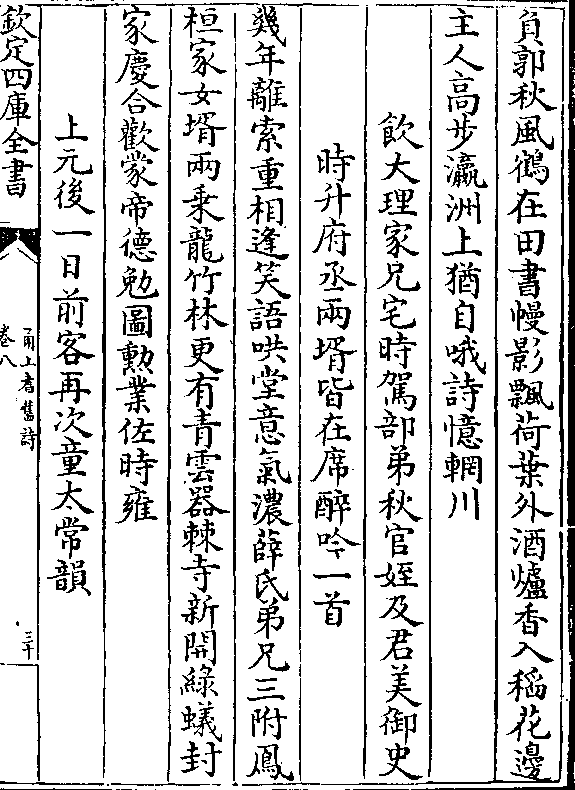 負郭秋風鶴在田書幔影飄荷葉外酒爐香入稻花邊
主人高步瀛洲上猶自哦詩憶輞川
飲大理家兄宅時駕部弟秋官姪及君美御史
時升府丞兩壻皆在席醉吟一首
幾年離索重相逢笑語哄堂意氣濃薛氏弟兄三附鳳
桓家女壻兩乗龍竹林更有青雲器棘寺新開綠蟻封
家慶合歡蒙帝德勉圖勲業佐時雍
上元後一日前客再次童太常韻
欽定四庫全書
甬上耆舊詩
卷八
三十